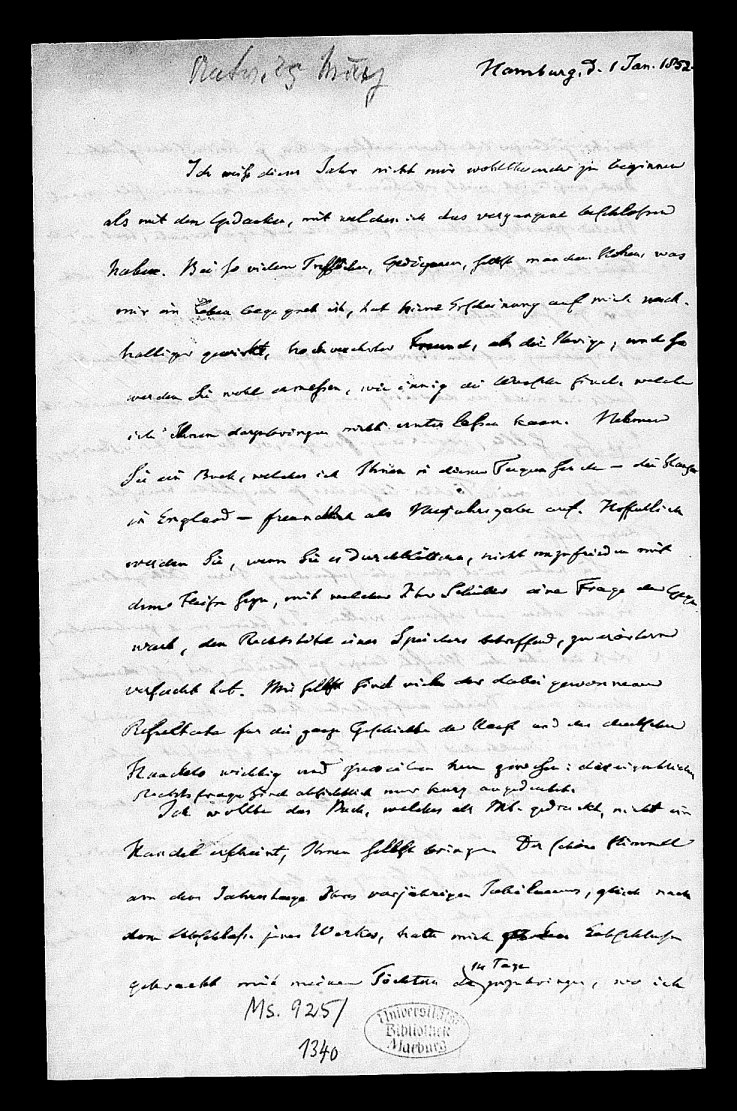 Hamburg, d. 1 Jan. 1852.
Ich weiß dieses Jahr nicht mir wohlthuender zu beginnen
als mit den Gedanken, mit welchen ich das vergangene beschlossen
habe. Bei so vielem Trefflichen, Gediegenen, selbst manchem Hohen, was
mir im Leben begegnet ist, hat keine Erscheinung auf mich nach-
haltiger gewirkt, hochverehrter Freund, als die Ihrige, und so
werden Sie wohl ermessen, wie innig die Wünsche sind, welche
ich Ihnen darzubringen nicht unterlassen kann. Nehmen
Sie ein Buch, welches ich Ihnen in diesen Tagen sende –
in England – freundlich als Neujahrsgabe auf. Hoffentlich
werden Sie, wenn Sie es durchblättern, nicht unzufrieden mit
dem Fleiße seyn, mit welchem Ihr Schüler eine Frage der Gegen-
wart, den Rechtstitel eines Speichers betreffend, zu erörtern
versucht hat. Mir selbst sind viele der dabei gewonnenen
Resultate für die ganze Geschichte der Hanse und des deutschen
Handels wichtig und
Rechtsfrage sind absichtlich nur kurz angedeutet.
Ich wollte das Buch, welches als Mt. gedruckt, nicht im
Handel erscheint, Ihnen selbst bringen. Der schöne Himmel
an dem Jahrestage Ihres vorjährigen Jubiläums, gleich nach
dem Abschlusse jenes Werkes, hatte mich zu dem Entschlusse
gebracht mit meinen Töchtern 14 Tage zuzubringen, wo ich
Ms. 925/
1340
Universitäts
Bibliothek
Marburg